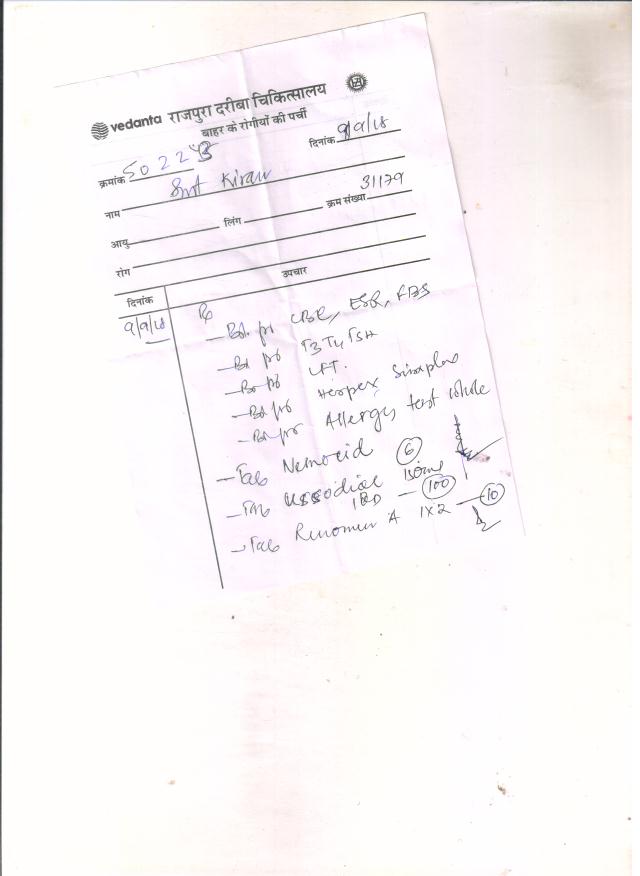 vedanta राजपुरा दरीबा चिकित्सालय
बाहर के रोगीयों की पर्ची
क्रमांक 50223 दिनांक 9/9/18
नाम Smt Kiran
आयु लिंग क्रम संख्या 31179
रोग
दिनांक उपचार
9/9/18 Rx
- Bl. for CBC, ESR, FBS
- Bl for T3 T4 TSH
- Bl for LFT.
- Bl for Herpex Simplex
- Bl for Allergy test whole
- Tab Nemocid 6
- Tab 150mg
1BD - 100
- Tab A 1x2 - 10